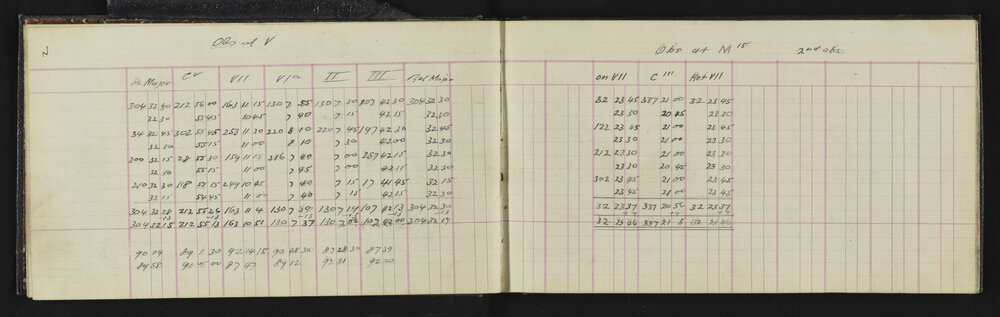 2
Obs at V
on Major C V VII VIa II III Ref Major
304 32 30 212 56 00 163 11 15 130 7 55 130 7 30 107 42 30 304 32 30
32 30 55 45 10 45 7 40 7 15 42 15 32 30
34 32 45 302 55 45 253 11 30 220 8 10 220 7 45 197 42 30 32 45
32 30 55 15 11 00 8 10 7 30 42 00 32 30
300 32 15 28 55 30 154 11 15 316 7 40 7 00 257 42 15 32 15
32 30 55 15 11 00 7 45 7 00 42 15 32 30
210 32 30 118 55 15 244 10 45 7 40 7 15 17 41 45 32 15
32 15 54 45 11 00 7 40 7 15 42 15 32 30
304 32 28 212 55 26 163 11 4 130 7 50 130 7 19 107 42 13 304 32 30
304 32 15 212 55 13 163 10 51 130 7 37 130 7 107 42 00 304 32 17
90 04 89 30 92 14 15 90 48 30 87 28 30 87 39
89 58 90 00 87 47 89 12 92 31 92 20
Obs at M 15 2nd obs
on VII C III Ref VII
32 23 45 337 21 00 32 23 45
23 30 20 45 23 30
122 23 45 21 00 23 45
23 30 21 00 23 30
212 23 30 21 00 23 30
23 30 20 45 23 30
302 23 45 21 00 23 45
23 45 21 00 23 45
32 23 37 337 20 56 32 23 37
32 23 46 337 21 5 32 23 46